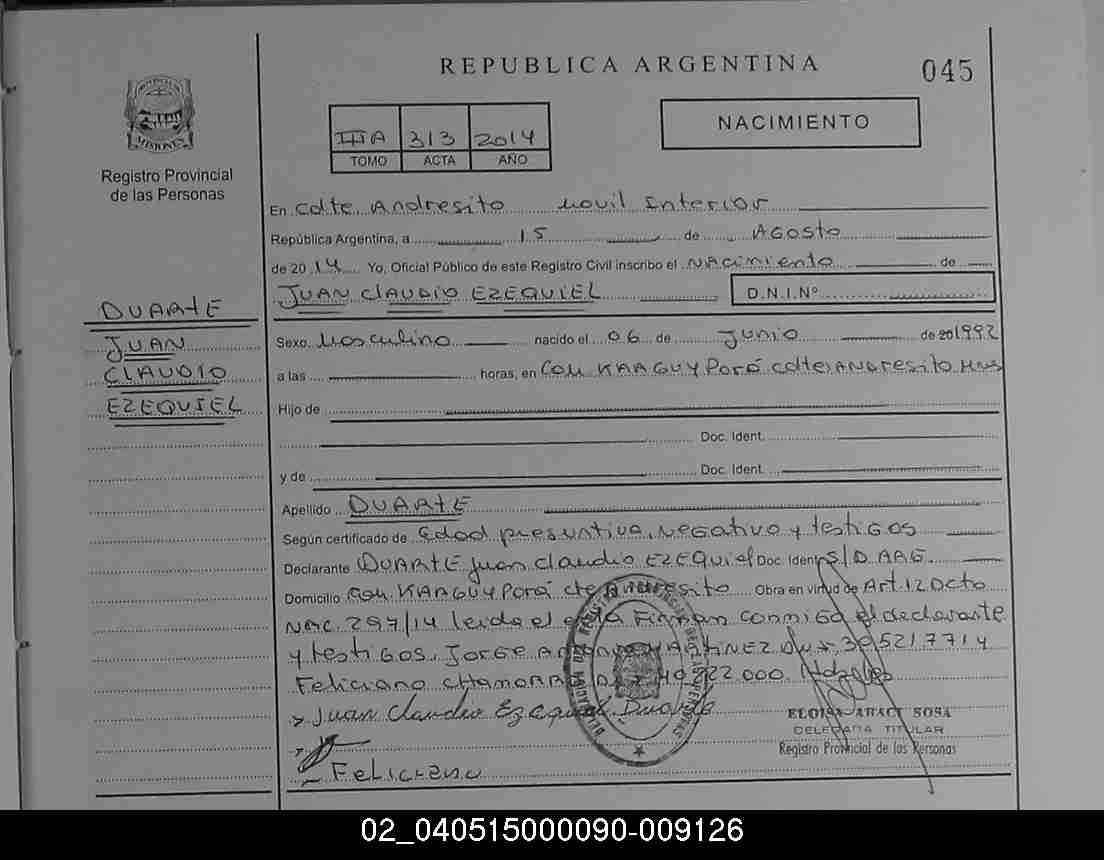 REPUBLICA ARGENTINA
045
PROVINCIA DE MISIONES
Registro Provincial
de las Personas
NACIMIENTO
IIIA 313 2014
TOMO ACTA AÑO
En Cdte. Andresito Movil Interior
República Argentina, a 15 de Agosto
de 2014 Yo, Oficial Público de este Registro Civil inscribo el Nacimiento de
JUAN CLAUDIO EZEQUIEL D.N.I.Nº
DUARTE
JUAN
CLAUDIO
EZEQUIEL
Sexo Masculino nacido el 06 de Junio de 201992
a las horas, en Com KAAGUY Porá cdte ANdresito Mns
Hijo de
Doc. Ident.
y de Doc. Ident.
Apellido DUARTE
Según certificado de Edad presuntiva, negativo y testigos
Declarante DUARTE Juan Claudio EZEQUIEL Doc. Ident. S/D. AAG.
Domicilio Com KAAGUY Porá cte Andresito Obra en virtud de Art. 12 Dcto
Nac. 297/14 leida el acta Firman conmigo el declarante
y testigos. JORGE MARTINEZ 305217714
Feliciano CHAMORRO 222.000.
Juan Claudio Ezequiel Duarte
Feliciano
ELOISA ARACI SOSA
DELEGADA TITULAR
Registro Provincial de las Personas
02_040515000090-009126